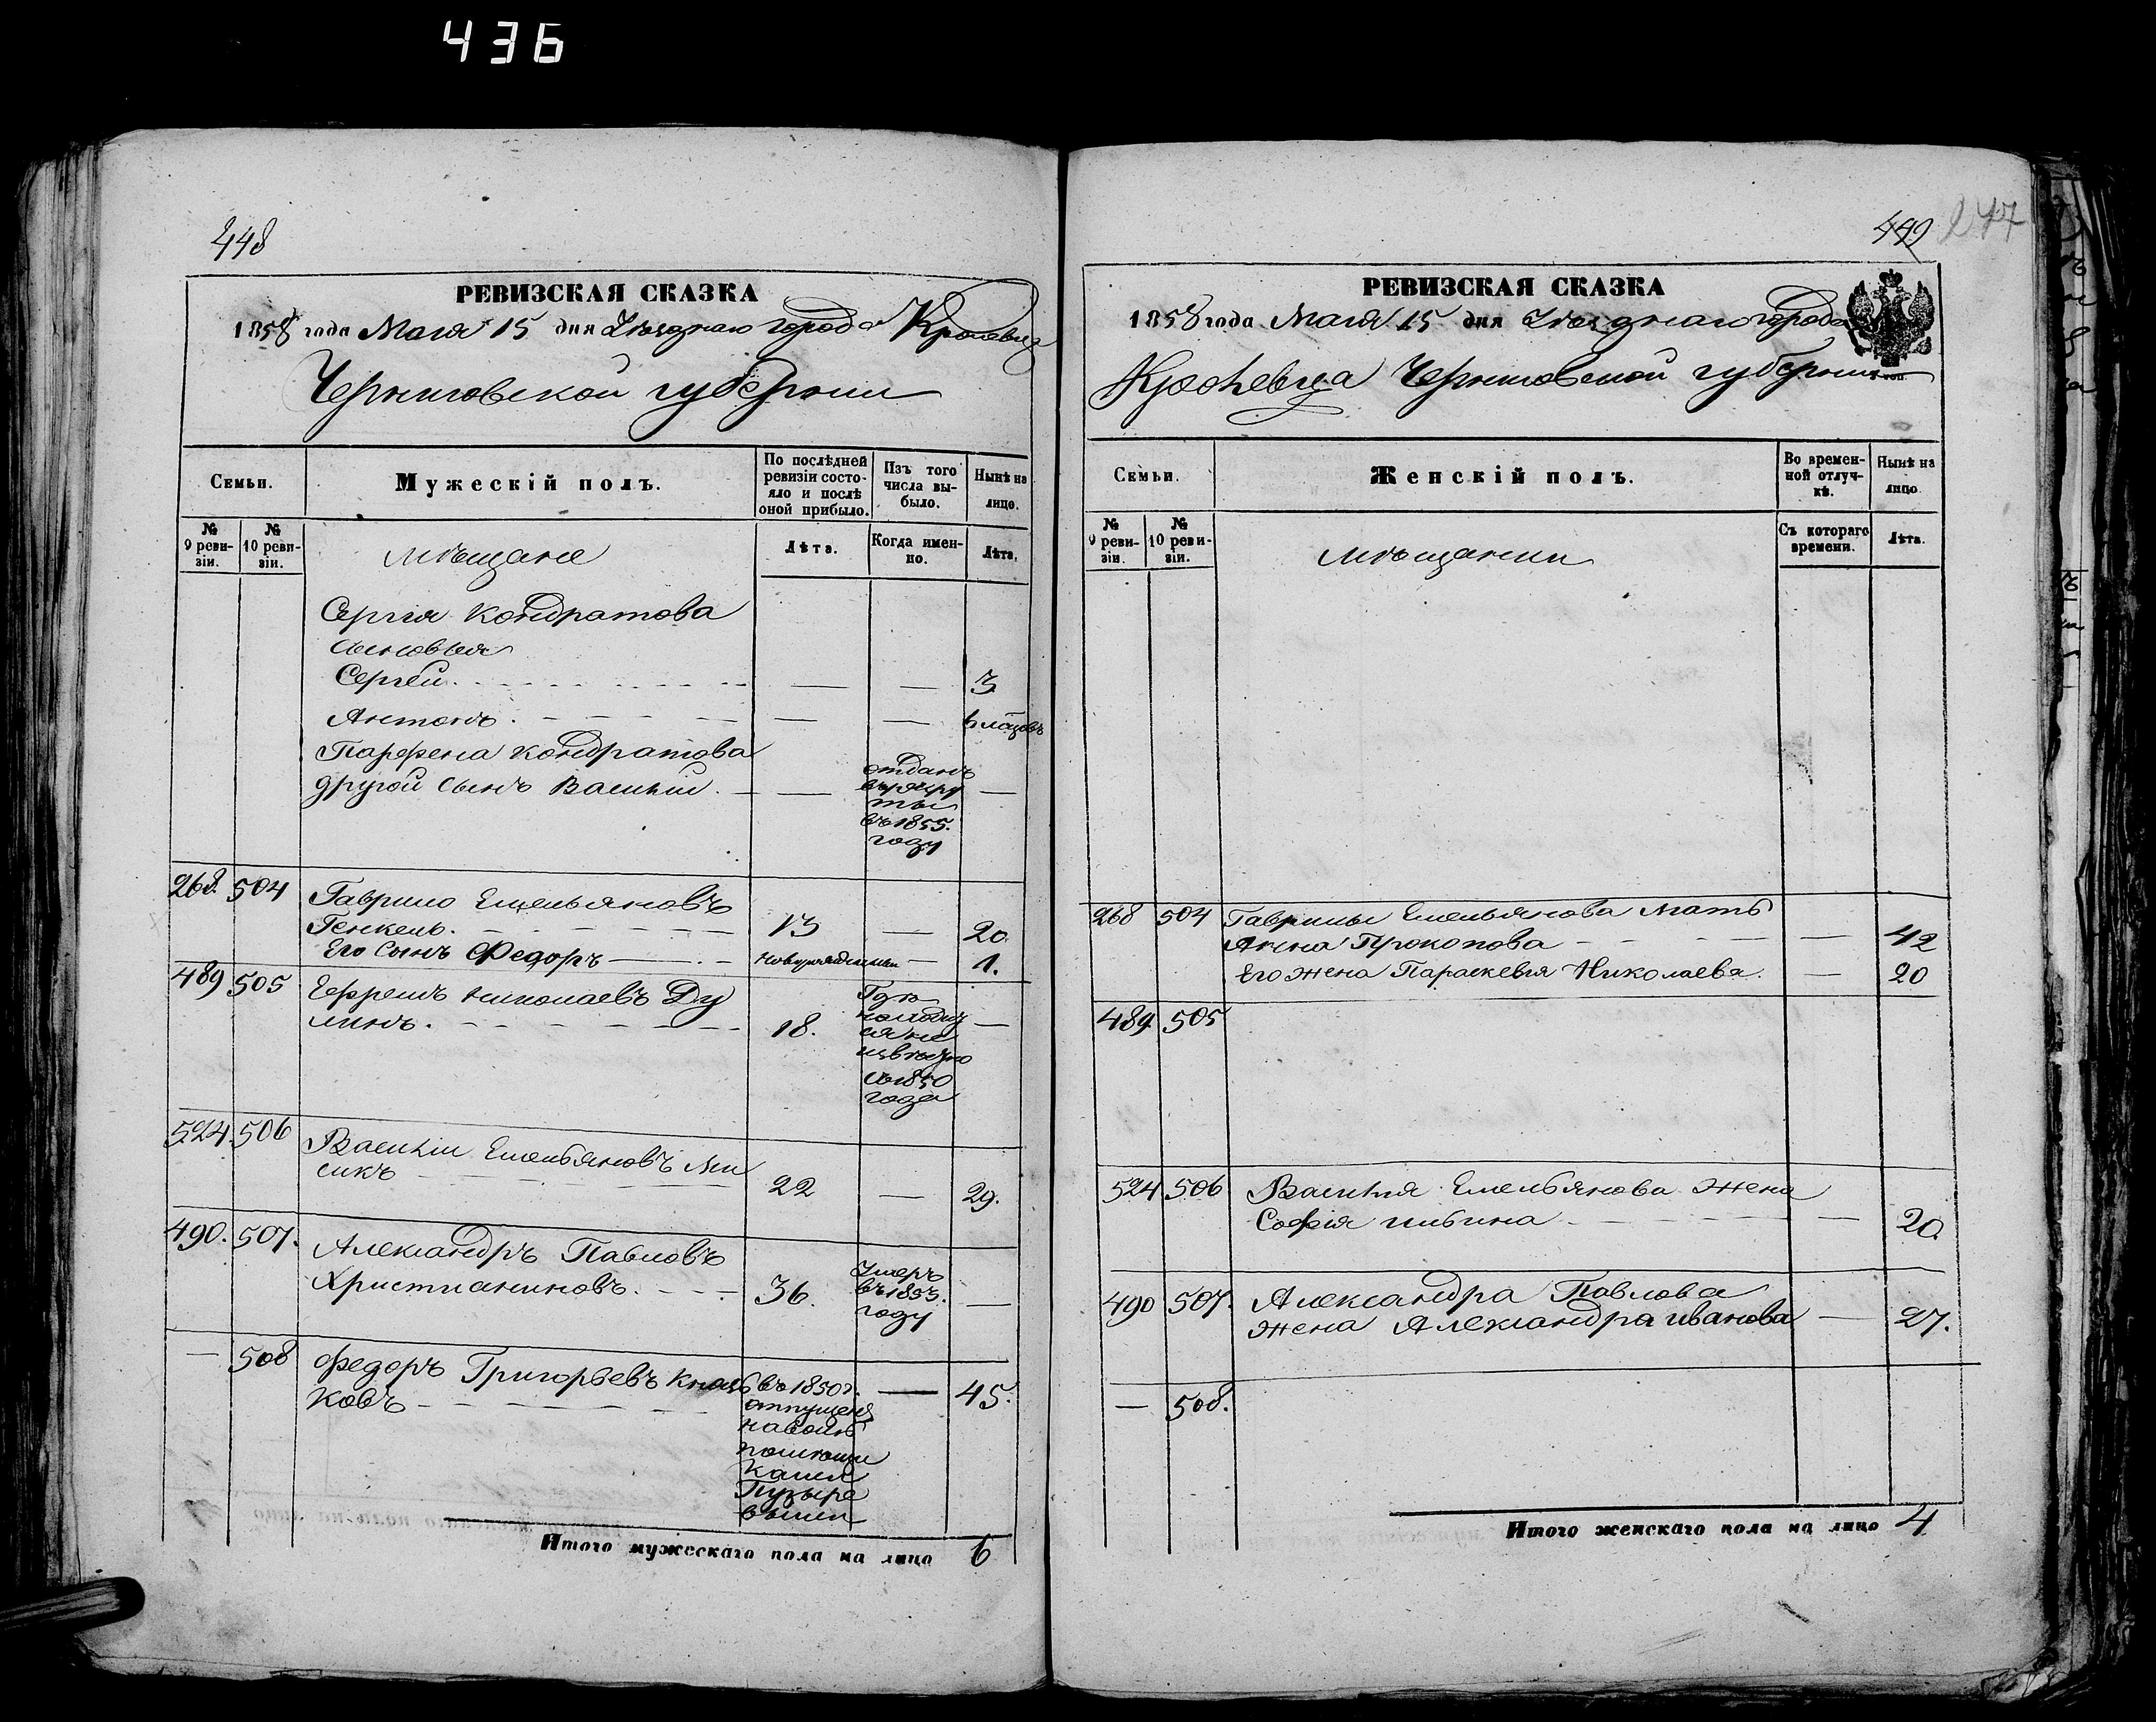 436
448
РЕВИЗСКАЯ СКАЗКА
1858 года Мая 15 дня Уѣзднаго города Кролевца
Черниговской губерніи
Семьи.
Мужескій полъ.
По послѣдней ревизіи состояло и послѣ оной прибыло.
Изъ того числа выбыло.
Нынѣ на лицо.
№ 9 ревизіи.
№ 10 ревизіи.
Мѣщане
Лѣта.
Когда именно.
Лѣта.
Сергія Кондратова
Сыновья
Сергей. — — 3
Антонъ. — —
Парфена Кондратова
другой сынъ Василій. — отданъ въ рекруты въ 1855. году —
268. 504 Гаврило Емельяновъ
Генкель. 13 — 20
Его Сынъ Федоръ — новорожденный — 1.
489 505 Ефремъ Николаевъ Ду
линъ. 18. Где находится не извѣстно съ 1850 года —
524. 506 Василій Емельяновъ Ми
сикъ 22 — 29.
490. 507. Александръ Павловъ
Христианиновъ. 36. Умеръ въ 1853. году —
— 508 Федоръ Григорьевъ Княз
ковъ въ 1850 г. отпущенъ на волю Пузыревыми — 45.
Итого мужескаго пола на лицо 6
449 247
РЕВИЗСКАЯ СКАЗКА
1858 года Мая 15 дня Уѣзднаго города
Кролевца Черниговской губерніи
Семьи.
Женскій полъ.
Во временной отлучкѣ.
Нынѣ на лицо
№ 9 ревизіи.
№ 10 ревизіи.
Мѣщанки
Съ котораго времени.
Лѣта.
268 504 Гаврилы Емельянова Мать
Анна Прокопова — 42
Его жена Параскевія Николаева. — 20
489 505
524 506 Василія Емельянова жена
Софія Ильина — 20.
490 507. Александра Павлова
жена Александра Иванова — 27.
— 508.
Итого женскаго пола на лицо 4